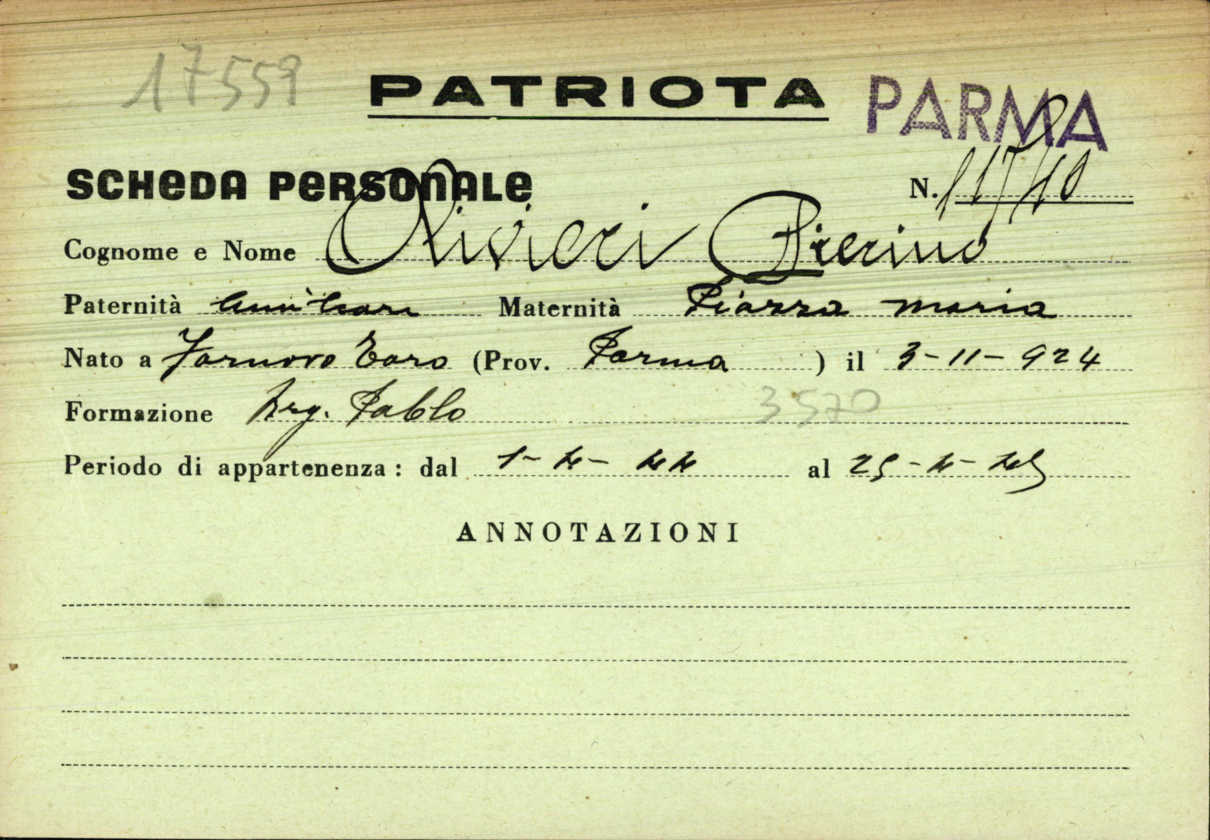 17559
PATRIOTA PARMA
SCHEDA PERSONALE N.
Cognome e Nome Olivieri Pierino
Paternità Amilcare Maternità Piazza maria
Nato a Fornovo Taro (Prov. Parma ) il 3-11-924
Formazione Brg. Pablo 3570
Periodo di appartenenza: dal 1-4-44 al 25-4-45
ANNOTAZIONI